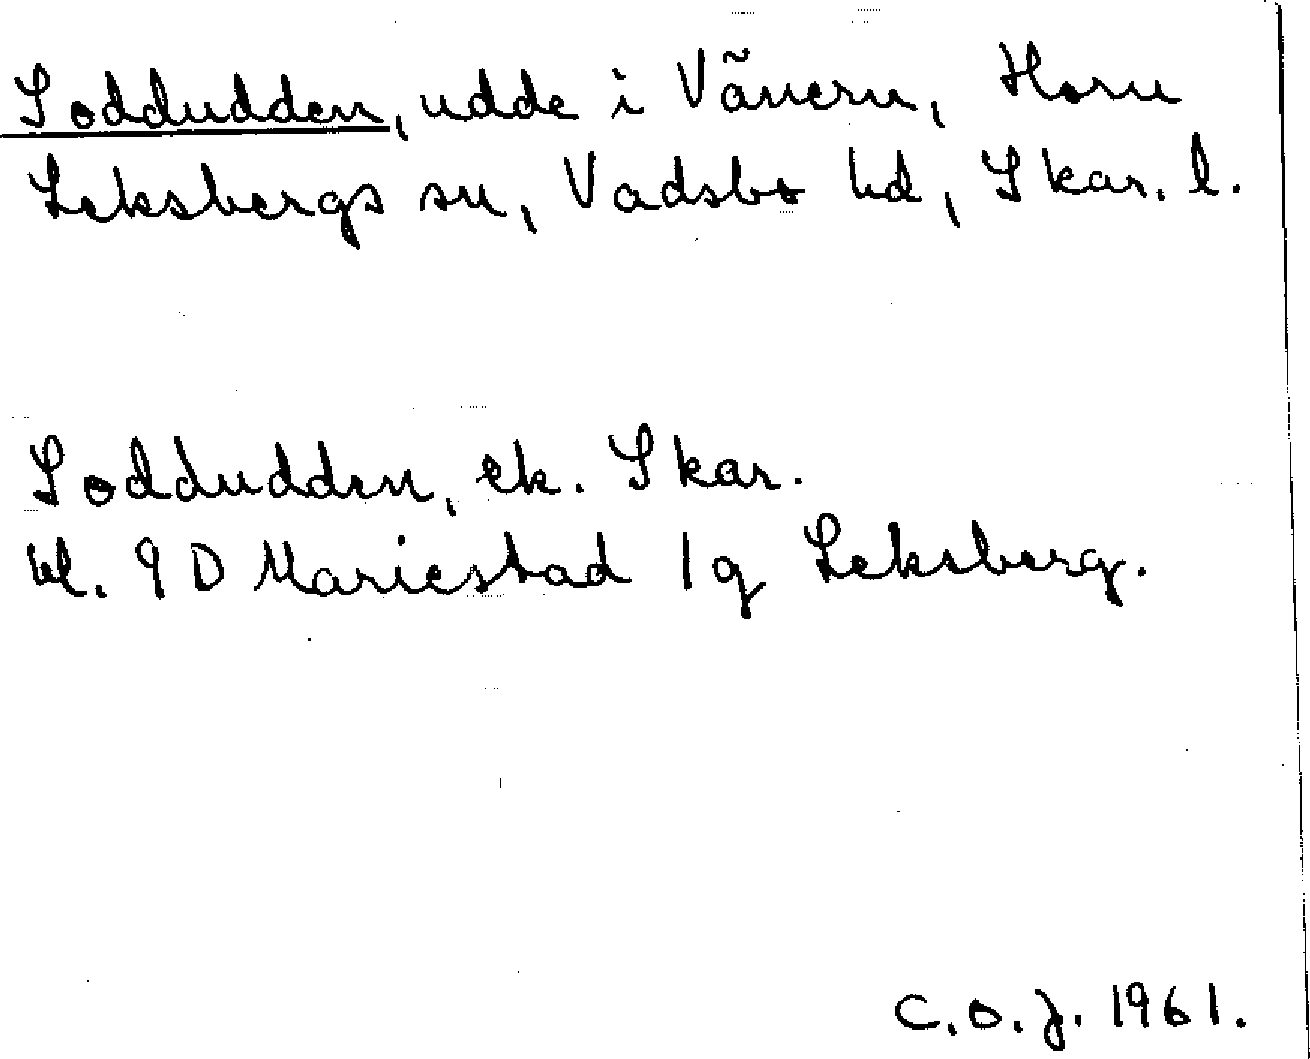 Soddudden, udde i Vänern, Horn
Leksbergs sn, Vadsbo hd, Skar. l.
Soddudden, ek. Skar.
bl. 9 D Mariestad 1 g Leksberg.
C.O.J. 1961.